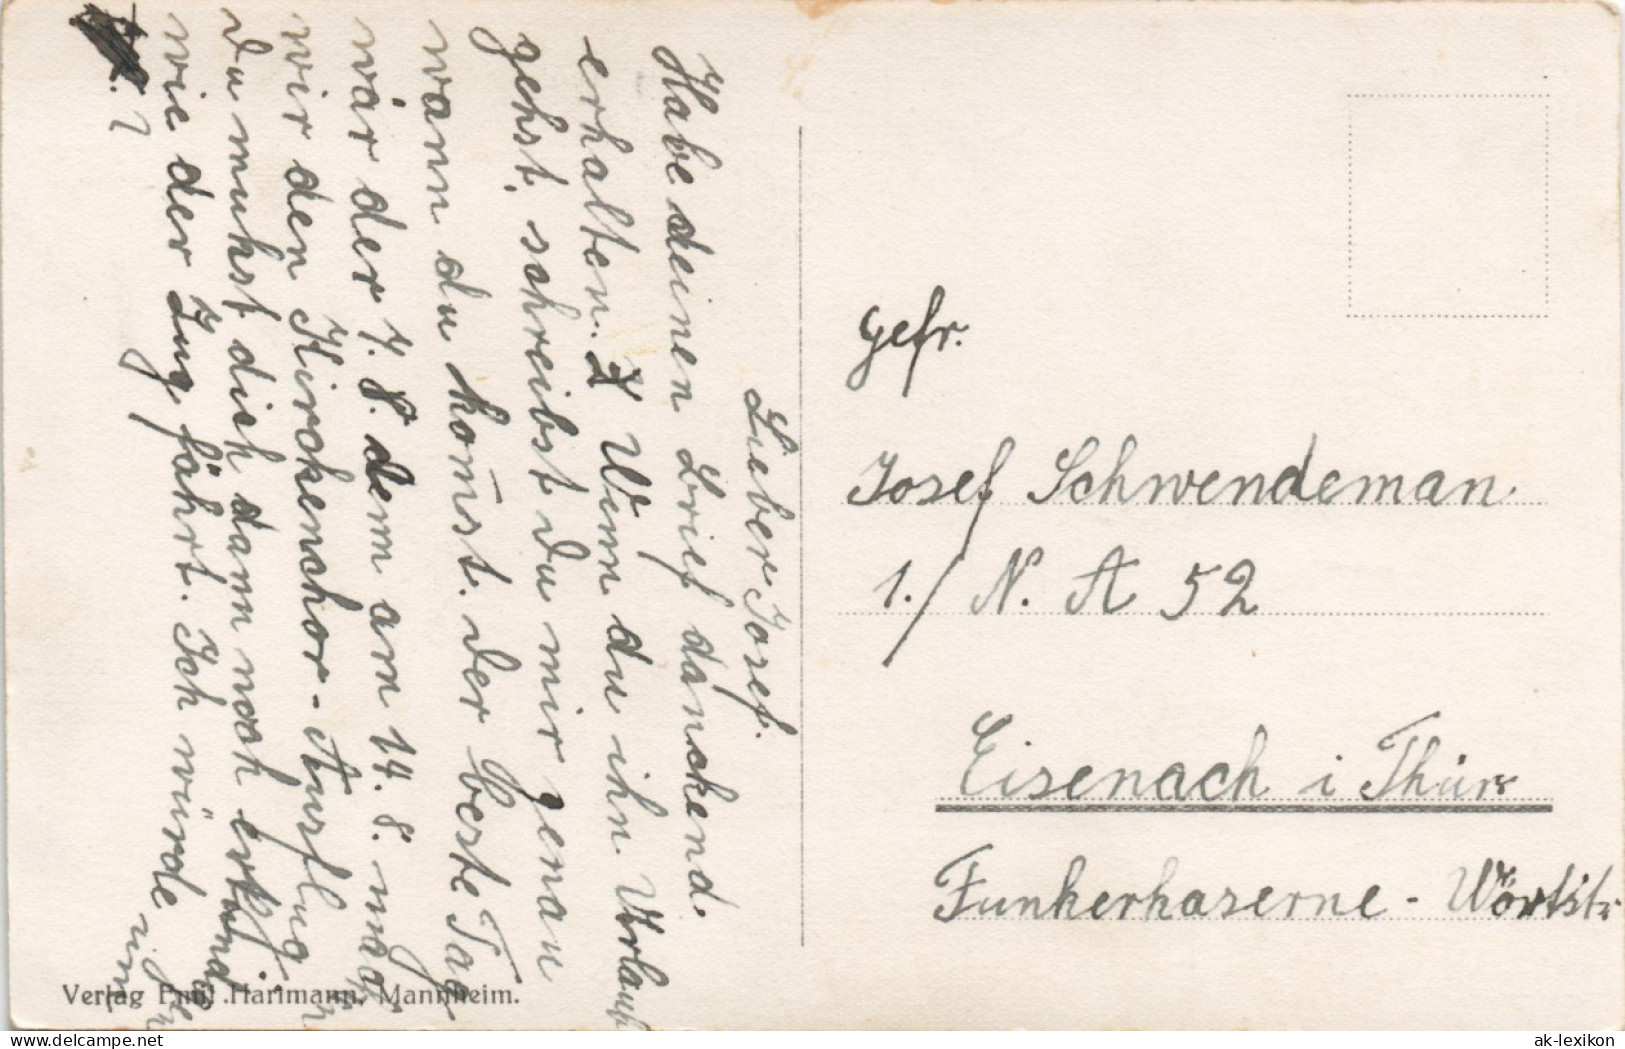 Lieber Josef.
Habe deinen Brief danckend
erhalten. Wenn du ihn Urlaub
gehst. schreibst Du mir genau
wann du kom̄st. Der beste Tag
wär der 7. 8. dem am 14. 8. mach
wir den Kirchenchor-Ausflug.
Du muhst dich dann noch erkund
wie der Zug fährt. Ich würde
?
Gefr.
Josef Schwendeman
1./N. A 52
Eisenach i Thür
Funkerkaserne - Wörtstr
Verlag Emil Hartmann, Mannheim.
hosting www.delcampe.net
ak-lexikon